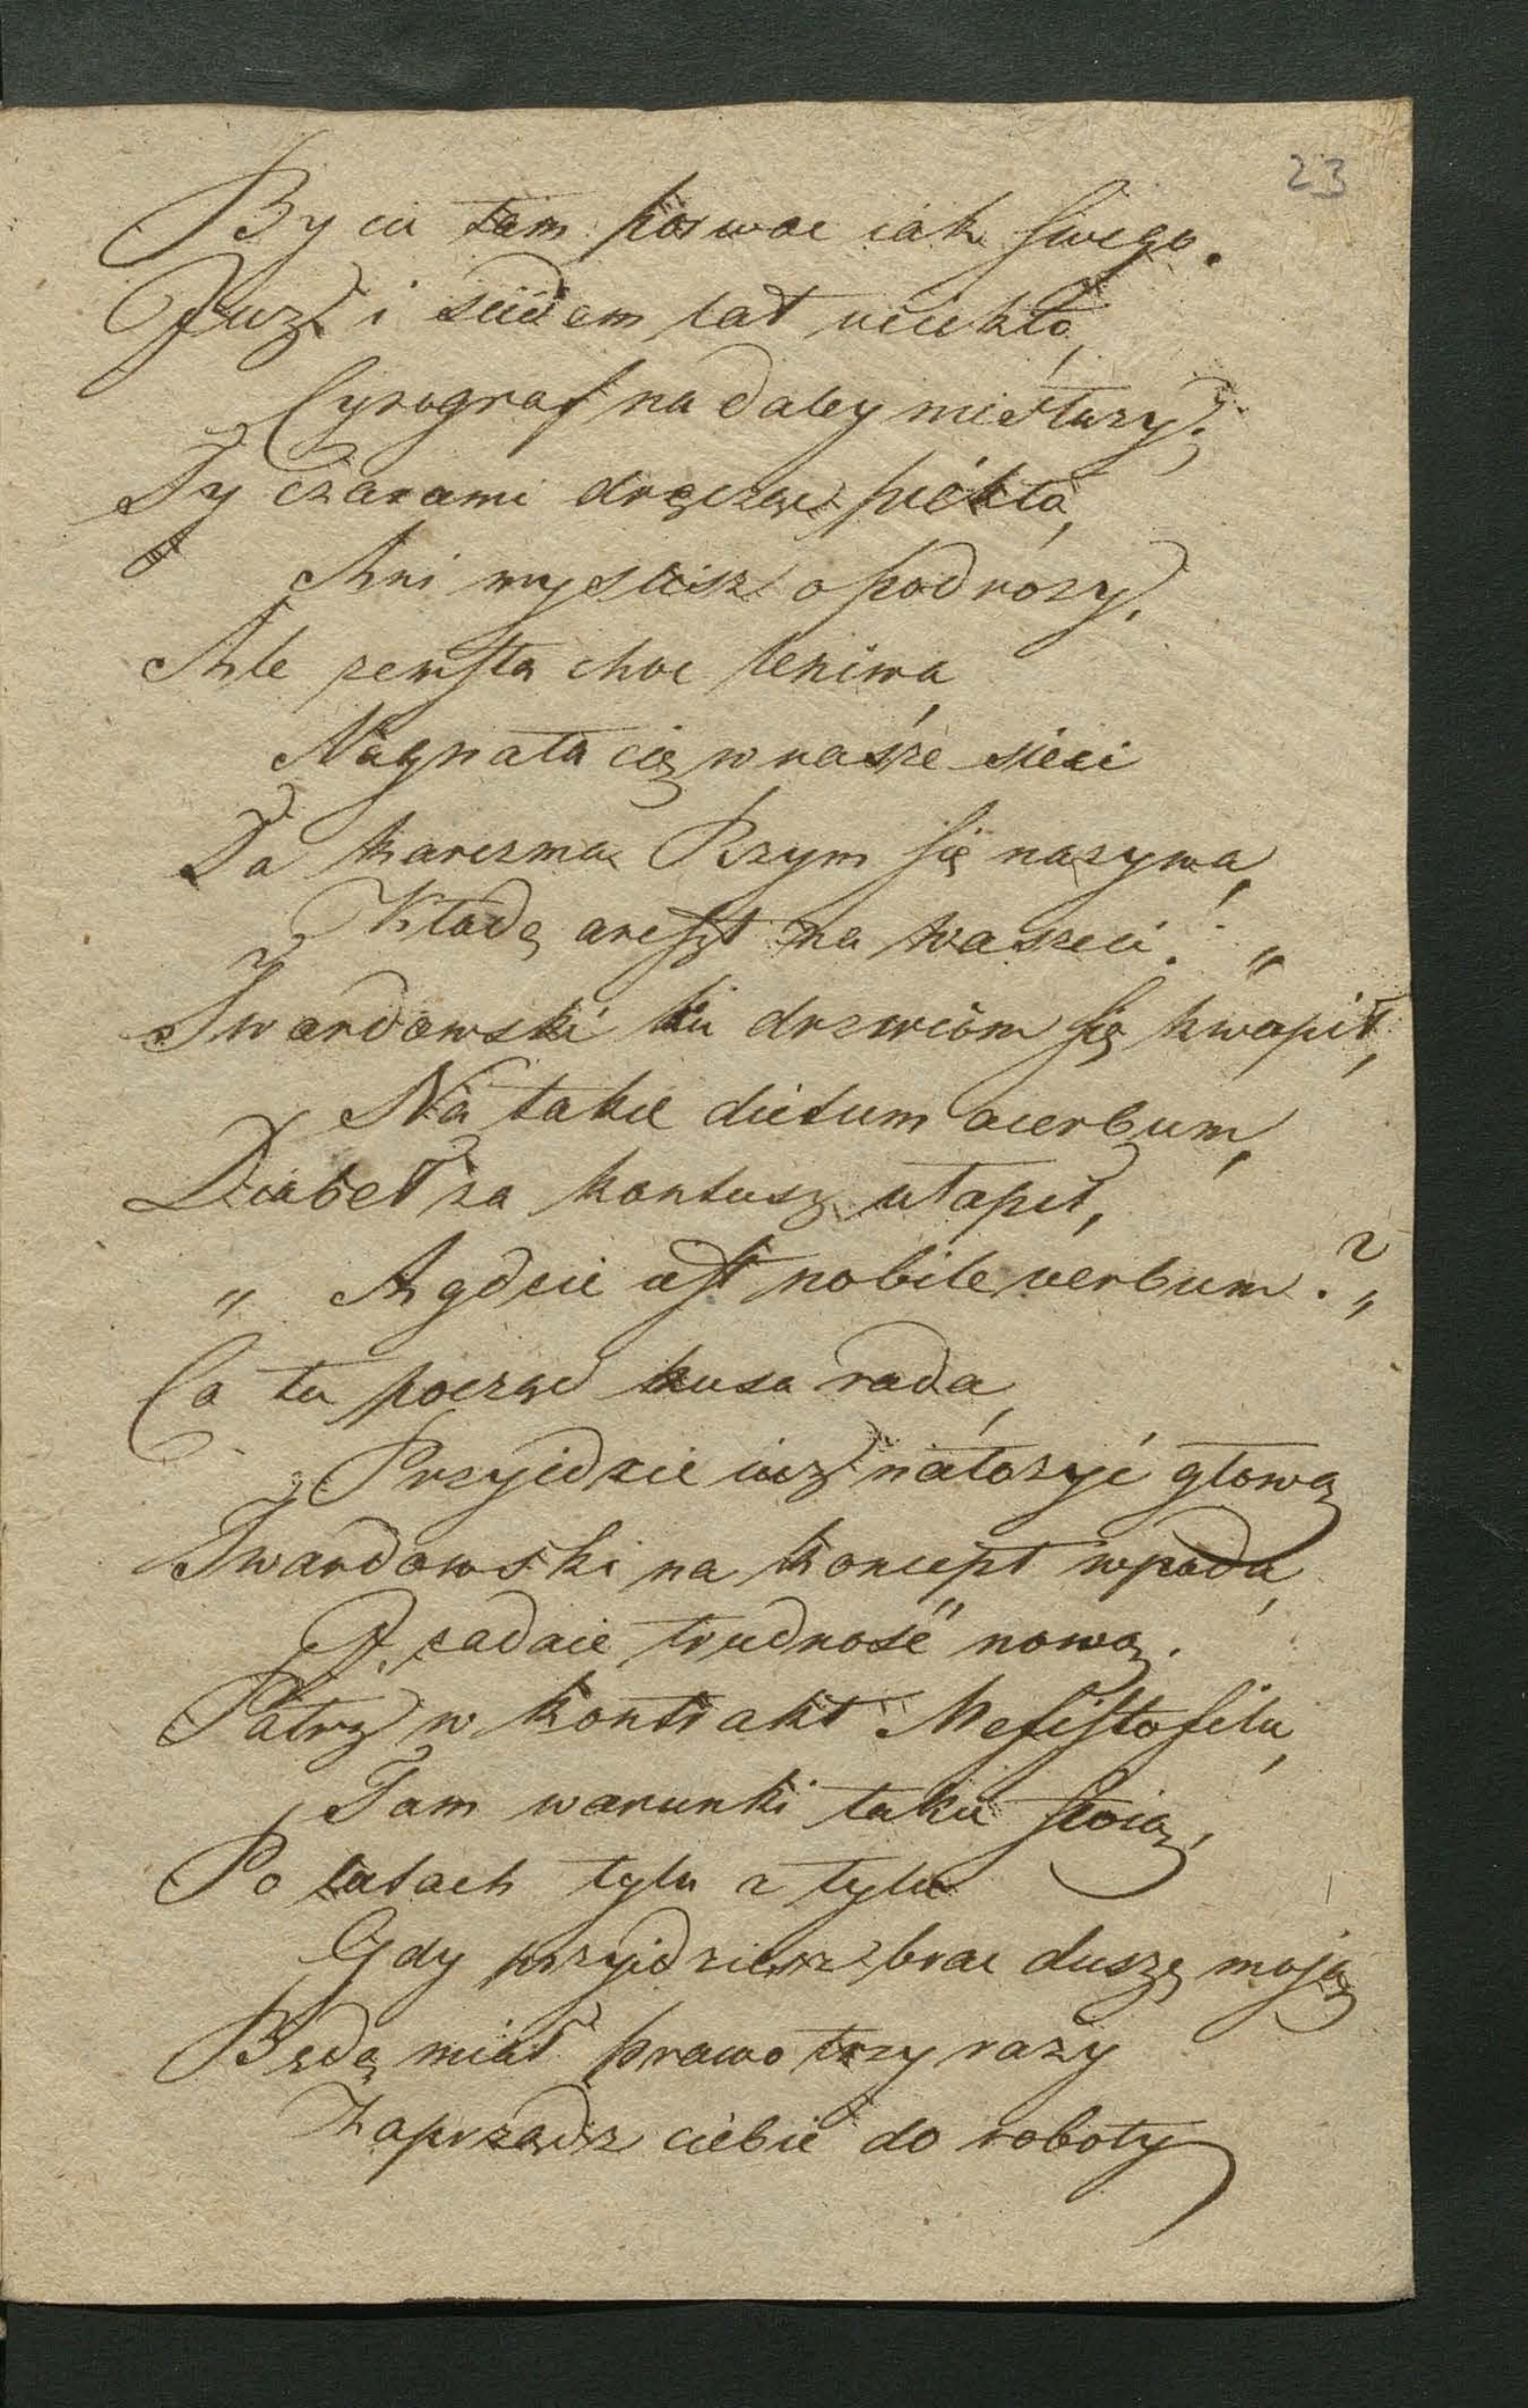 23
By cię tam porwac iak swego.
Juz i siedem lat uciekło,
Cyrograf na daley niesłuzy;
Ty czarami dręcząc piekło,
Ani myslisz o podrozy.
Ale zemsta choc leniwa,
Nagnała cię w nasze sieci
Ta karczma Rzym się nazywa,
Kładę areszt na waszeci. „
Twardowski ku drzwiom się kwapił,
Na takie dictum acerbum,
Diabeł za kontusz ułapił,
„ A gdzie iest nobile verbum? „
Co tu począć kusa rada,
Przyidzie iuz nałozyć głową
Twardowski na koncept wpada,
I zadaie trudność nową.
Patrz w kontrakt Mefistofilu,
Tam warunki takie stoią,
Po latach tylu a tylu
Gdy przyidziesz brac duszę moją
Będę miał prawo trzy razy
Zaprządz ciebie do roboty